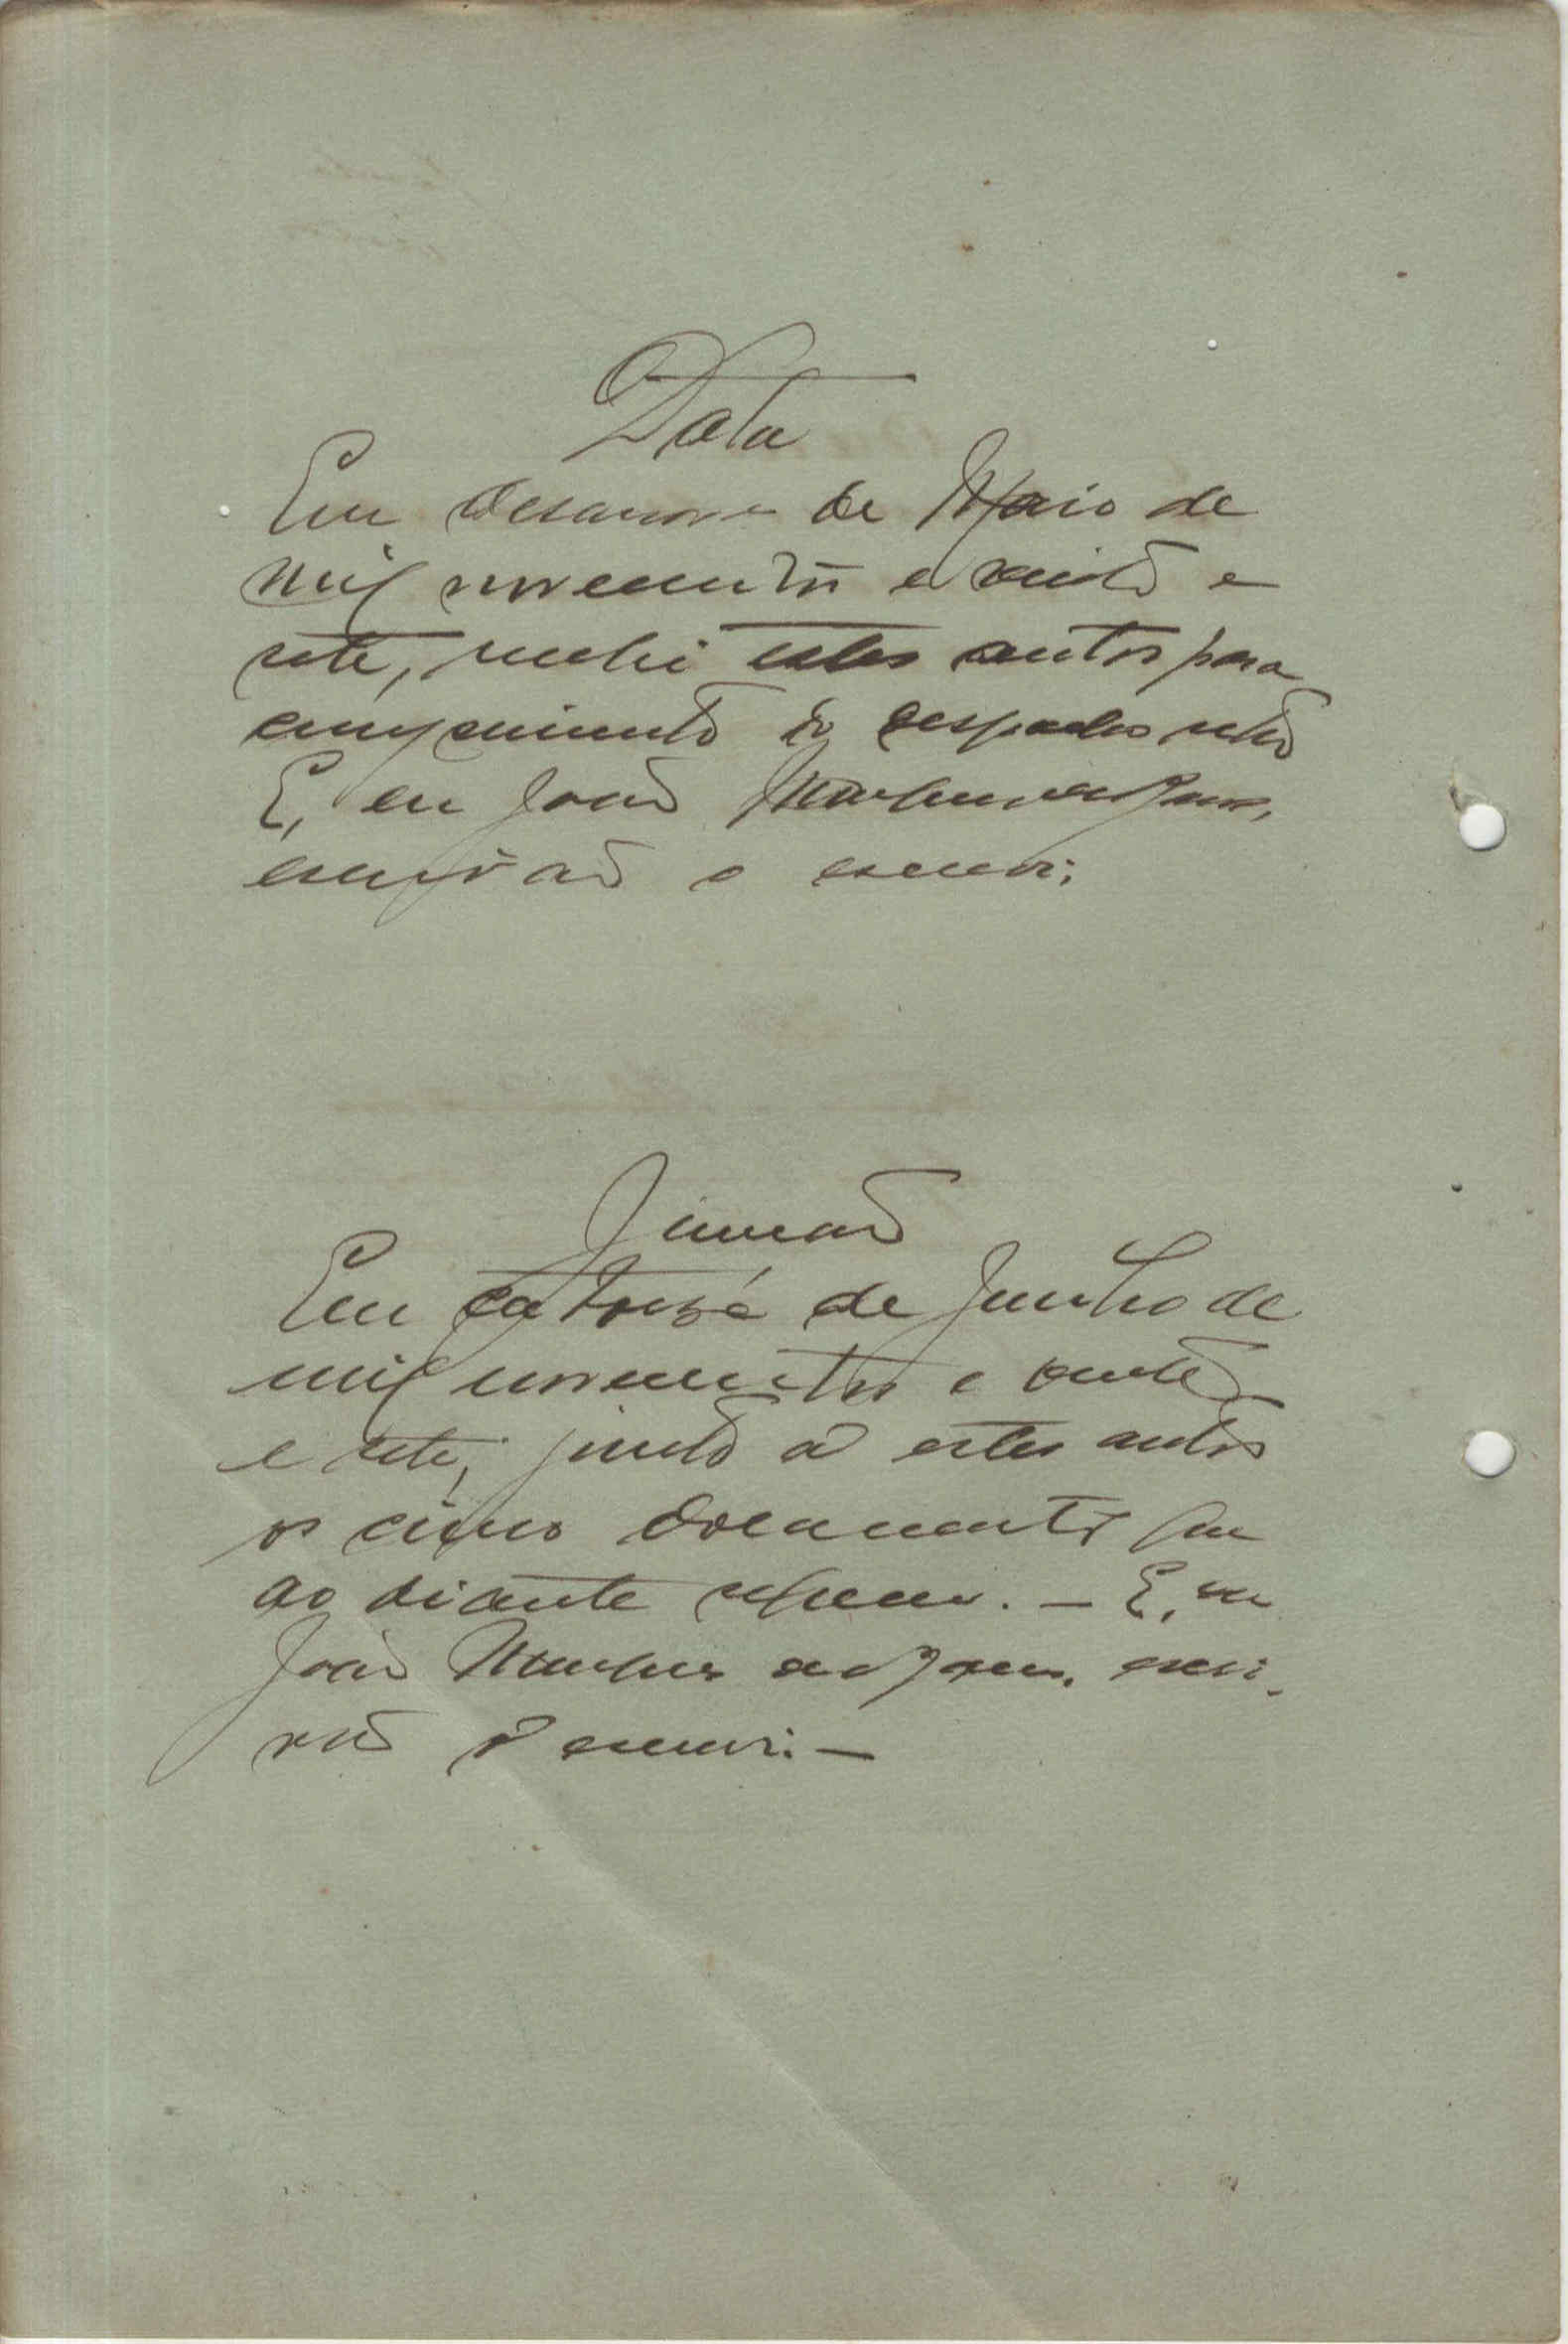 Data
Em desanove de Maio de
mil novecentos e vinte e
sete, recebi estes autos para
cumprimento do despacho retro
E, eu João Marques
escrivão o escrevi;
Juncção
Em catorze de Junho de
mil novecentos e vinte
e sete, junto a estes autos
os cinco documentos que
ao diante seguem. — E, eu
João Marques escri-
vão o escrevi. —